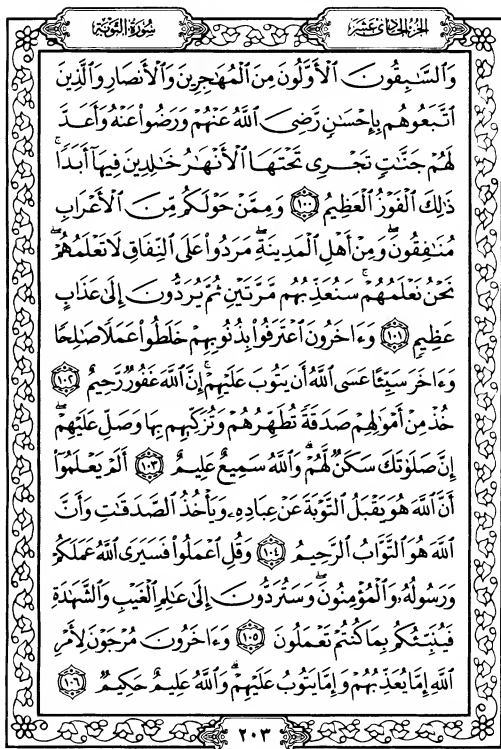 الجزء الحادي عشر
سورة التوبة
وَالسَّٰبِقُونَ الْأَوَّلُونَ مِنَ الْمُهَٰجِرِينَ وَالْأَنصَارِ وَالَّذِينَ
اتَّبَعُوهُم بِإِحْسَٰنٍ رَّضِىَ اللَّهُ عَنْهُمْ وَرَضُوا۟ عَنْهُ وَأَعَدَّ
لَهُمْ جَنَّٰتٍ تَجْرِى تَحْتَهَا الْأَنْهَٰرُ خَٰلِدِينَ فِيهَآ أَبَدًا ۚ
ذَٰلِكَ الْفَوْزُ الْعَظِيمُ ١٠٠ وَمِمَّنْ حَوْلَكُم مِّنَ الْأَعْرَابِ
مُنَٰفِقُونَ ۖ وَمِنْ أَهْلِ الْمَدِينَةِ ۖ مَرَدُوا۟ عَلَى النِّفَاقِ لَا تَعْلَمُهُمْ ۖ
نَحْنُ نَعْلَمُهُمْ ۚ سَنُعَذِّبُهُم مَّرَّتَيْنِ ثُمَّ يُرَدُّونَ إِلَىٰ عَذَابٍ
عَظِيمٍ ١٠١ وَءَاخَرُونَ اعْتَرَفُوا۟ بِذُنُوبِهِمْ خَلَطُوا۟ عَمَلًا صَٰلِحًا
وَءَاخَرَ سَيِّئًا عَسَى اللَّهُ أَن يَتُوبَ عَلَيْهِمْ ۚ إِنَّ اللَّهَ غَفُورٌ رَّحِيمٌ ١٠٢
خُذْ مِنْ أَمْوَٰلِهِمْ صَدَقَةً تُطَهِّرُهُمْ وَتُزَكِّيهِم بِهَا وَصَلِّ عَلَيْهِمْ ۖ
إِنَّ صَلَوٰتَكَ سَكَنٌ لَّهُمْ ۗ وَاللَّهُ سَمِيعٌ عَلِيمٌ ١٠٣ أَلَمْ يَعْلَمُوٓا۟
أَنَّ اللَّهَ هُوَ يَقْبَلُ التَّوْبَةَ عَنْ عِبَادِهِۦ وَيَأْخُذُ الصَّدَقَٰتِ وَأَنَّ
اللَّهَ هُوَ التَّوَّابُ الرَّحِيمُ ١٠٤ وَقُلِ اعْمَلُوا۟ فَسَيَرَى اللَّهُ عَمَلَكُمْ
وَرَسُولُهُۥ وَالْمُؤْمِنُونَ ۖ وَسَتُرَدُّونَ إِلَىٰ عَٰلِمِ الْغَيْبِ وَالشَّهَٰدَةِ
فَيُنَبِّئُكُم بِمَا كُنتُمْ تَعْمَلُونَ ١٠٥ وَءَاخَرُونَ مُرْجَوْنَ لِأَمْرِ
اللَّهِ إِمَّا يُعَذِّبُهُمْ وَإِمَّا يَتُوبُ عَلَيْهِمْ ۗ وَاللَّهُ عَلِيمٌ حَكِيمٌ ١٠٦
٢٠٣